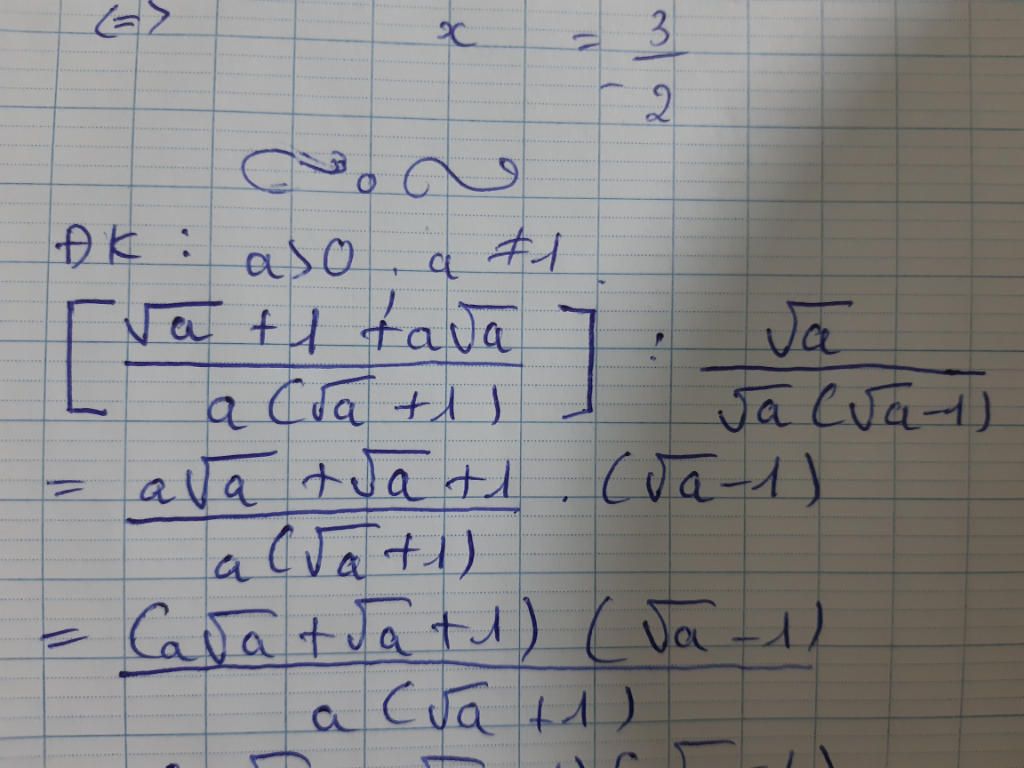 <=> x = 3/-2
ĐK : a>0, a ≠1
[(√a + 1 + a√a)/(a(√a + 1))] : √a/(√a(√a-1))
= (a√a + √a + 1)/(a(√a + 1)) . (√a - 1)
= ((a√a + √a + 1)(√a - 1))/(a(√a + 1))